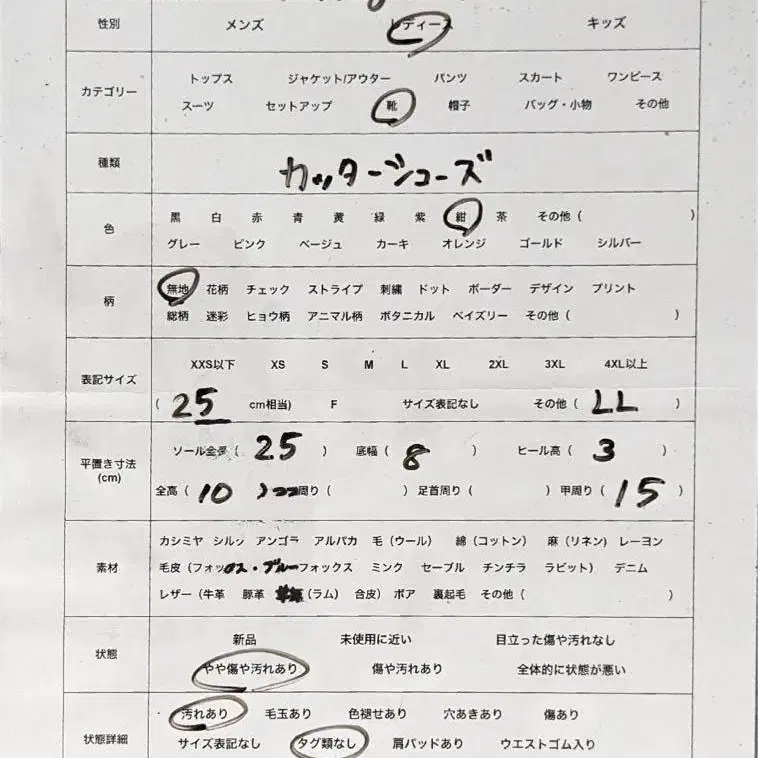 性別 メンズ レディース キッズ
カテゴリー
トップス ジャケット/アウター パンツ スカート ワンピース
スーツ セットアップ 靴 帽子 バッグ・小物 その他
種類 カッターシューズ
色
黒 白 赤 青 黄 緑 紫 紺 茶 その他 ( )
グレー ピンク ベージュ カーキ オレンジ ゴールド シルバー
柄
無地 花柄 チェック ストライプ 刺繍 ドット ボーダー デザイン プリント
総柄 迷彩 ヒョウ柄 アニマル柄 ボタニカル ペイズリー その他 ( )
表記サイズ
XXS以下 XS S M L XL 2XL 3XL 4XL以上
( 25 cm相当) F サイズ表記なし その他 ( LL )
平置き寸法
(cm)
ソール全長 ( 25 ) 底幅 ( 8 ) ヒール高 ( 3 )
全高 ( 10 ) 周り ( ) 足首周り ( ) 甲周り ( 15 )
素材
カシミヤ シルク アンゴラ アルパカ 毛 (ウール) 綿 (コットン) 麻 (リネン) レーヨン
毛皮 (フォックス・ブルーフォックス ミンク セーブル チンチラ ラビット) デニム
レザー (牛革 豚革 (ラム) 合皮) ボア 裏起毛 その他 ( )
状態
新品 未使用に近い 目立った傷や汚れなし
やや傷や汚れあり 傷や汚れあり 全体的に状態が悪い
状態詳細
汚れあり 毛玉あり 色褪せあり 穴あきあり 傷あり
サイズ表記なし タグ類なし 肩パッドあり ウエストゴム入り